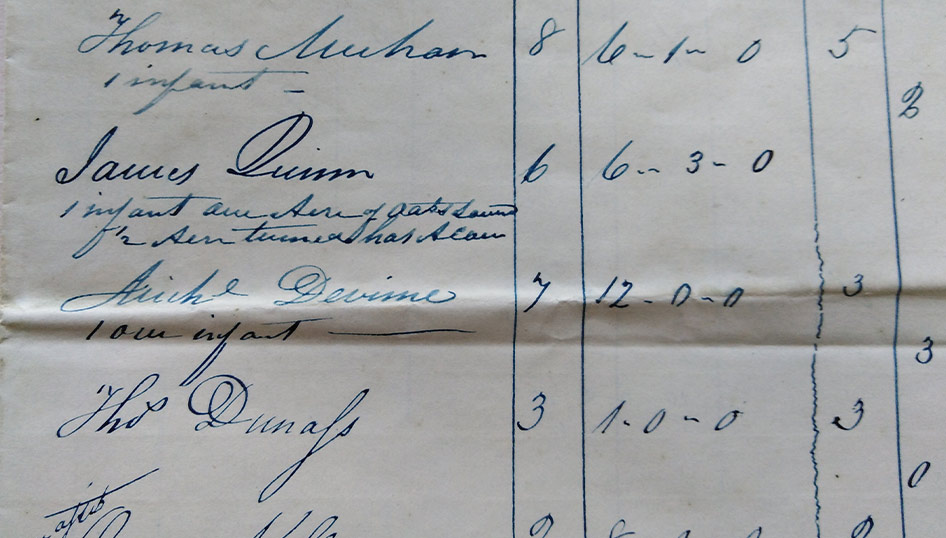 Thomas Meehan 8 6 - 1 - 0 5
1 infant -
2
James Quinn 6 6 - 3 - 0
1 infant one Acre of oats sowed
1/2 Acre turned has A Cow
Michl Devine 7 12 - 0 - 0 3
1 one infant
3
Thos Dunass 3 1 - 0 - 0 3
0